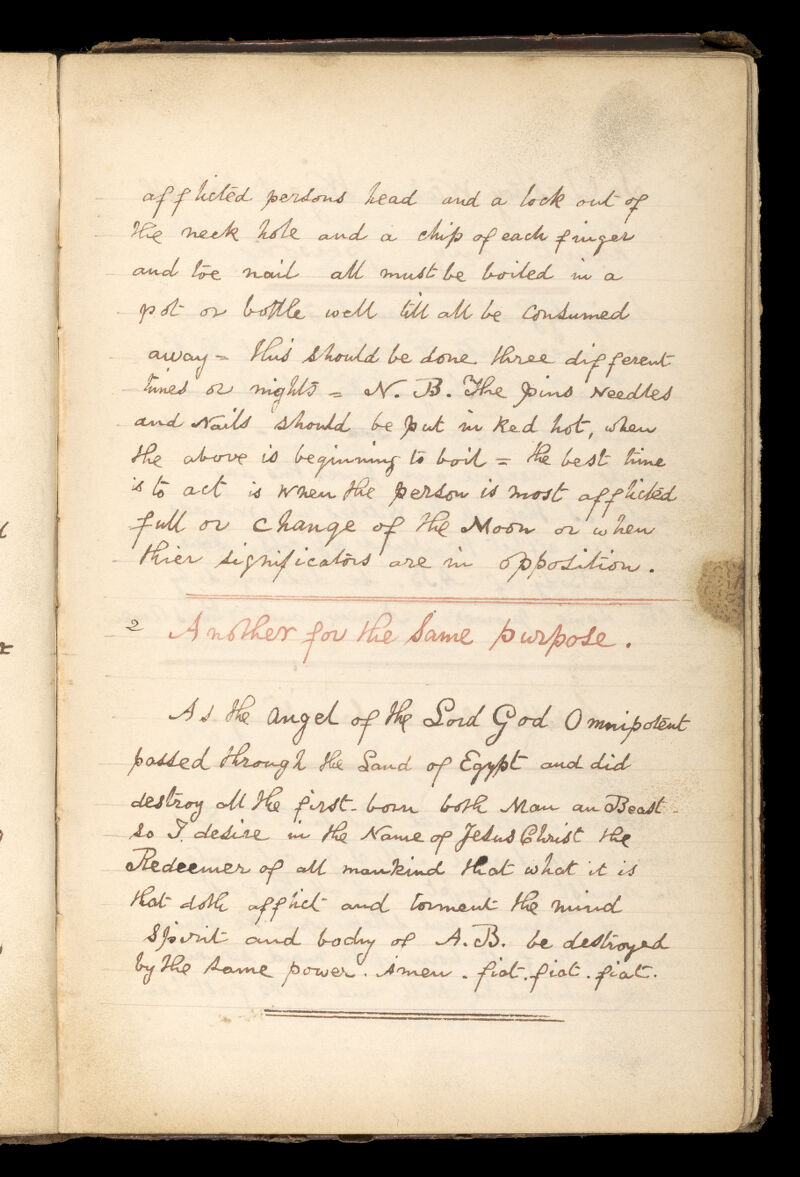 afflicted persons head and a lock out of
the neck hole and a chip of each finger
and toe nail all must be boiled in a
pot or bottle well till all be consumed
away = this should be done three different
times or nights = N. B. The pins Needles
and Nails should be put in Red hot, when
the above is beginning to boil = the best time
is to act is when the person is most afflicted
full or change of the Moon or when
thier significators are in opposition.
2 Another for the Same purpose.
As the angel of the Lord God Omnipotent
passed through the Land of Egypt and did
destroy all the first-born both Man an Beast
so I desire in the Name of Jesus Christ the
Redeemer of all mankind that what it is
that doth afflict and torment the mind
Spirit and body of A.B. be destroyed
by the same power. Amen. fiat. fiat. fiat.